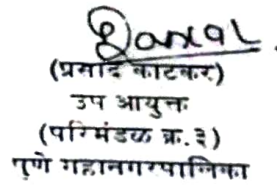 (प्रसाद काटकर)
उप आयुक्त
(परिमंडळ क्र. ३)
पुणे महानगरपालिका